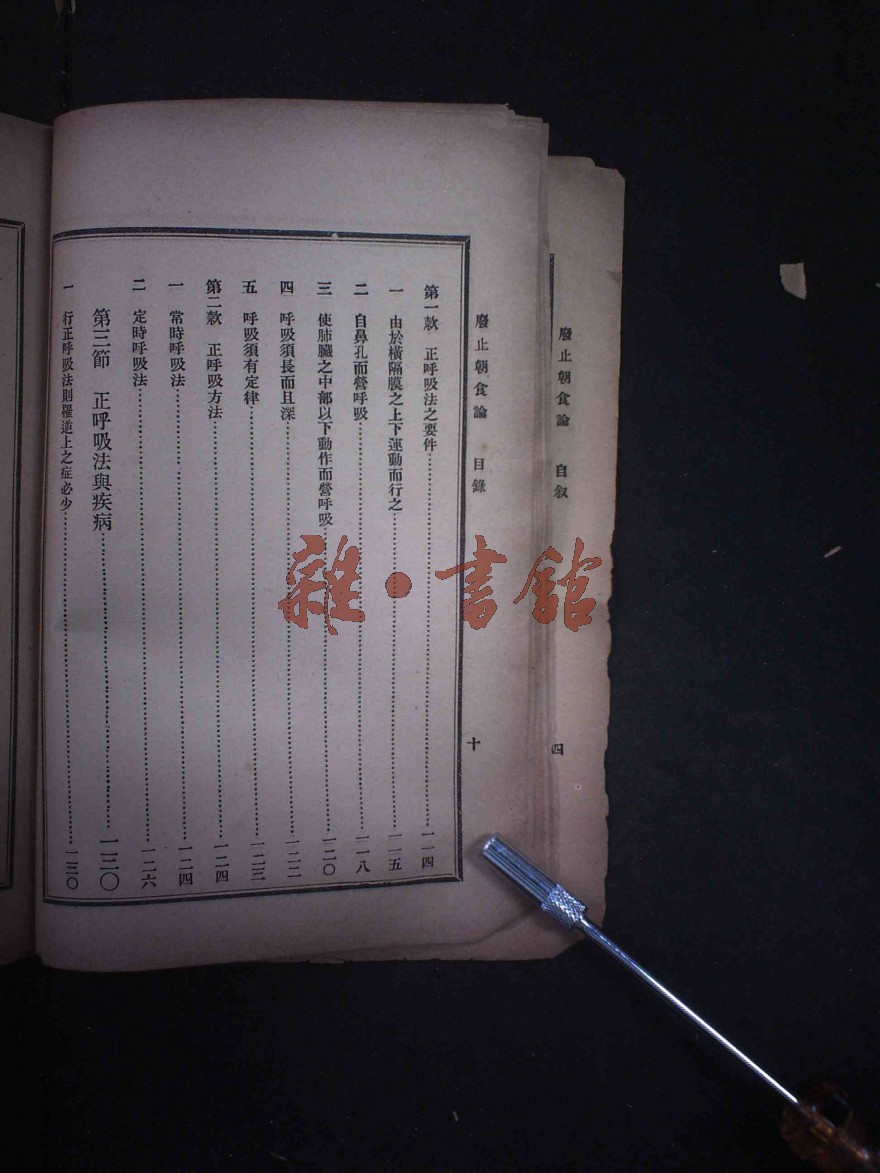 廢止朝食論　自敘　四
廢止朝食論　目錄　十
第一款　正呼吸法之要件……一一四
一　由於橫隔膜之上下運動而行之……一一五
二　自鼻孔而營呼吸……一一八
三　使肺臟之中部以下動作而營呼吸……一二〇
四　呼吸須長而且深……一二二
五　呼吸須有定律……一二三
第二款　正呼吸方法……一二四
一　常時呼吸法……一二四
二　定時呼吸法……一二六
第三節　正呼吸法與疾病……一三〇
一　行正呼吸法則罹道上之症必少……一三〇
雜·書館